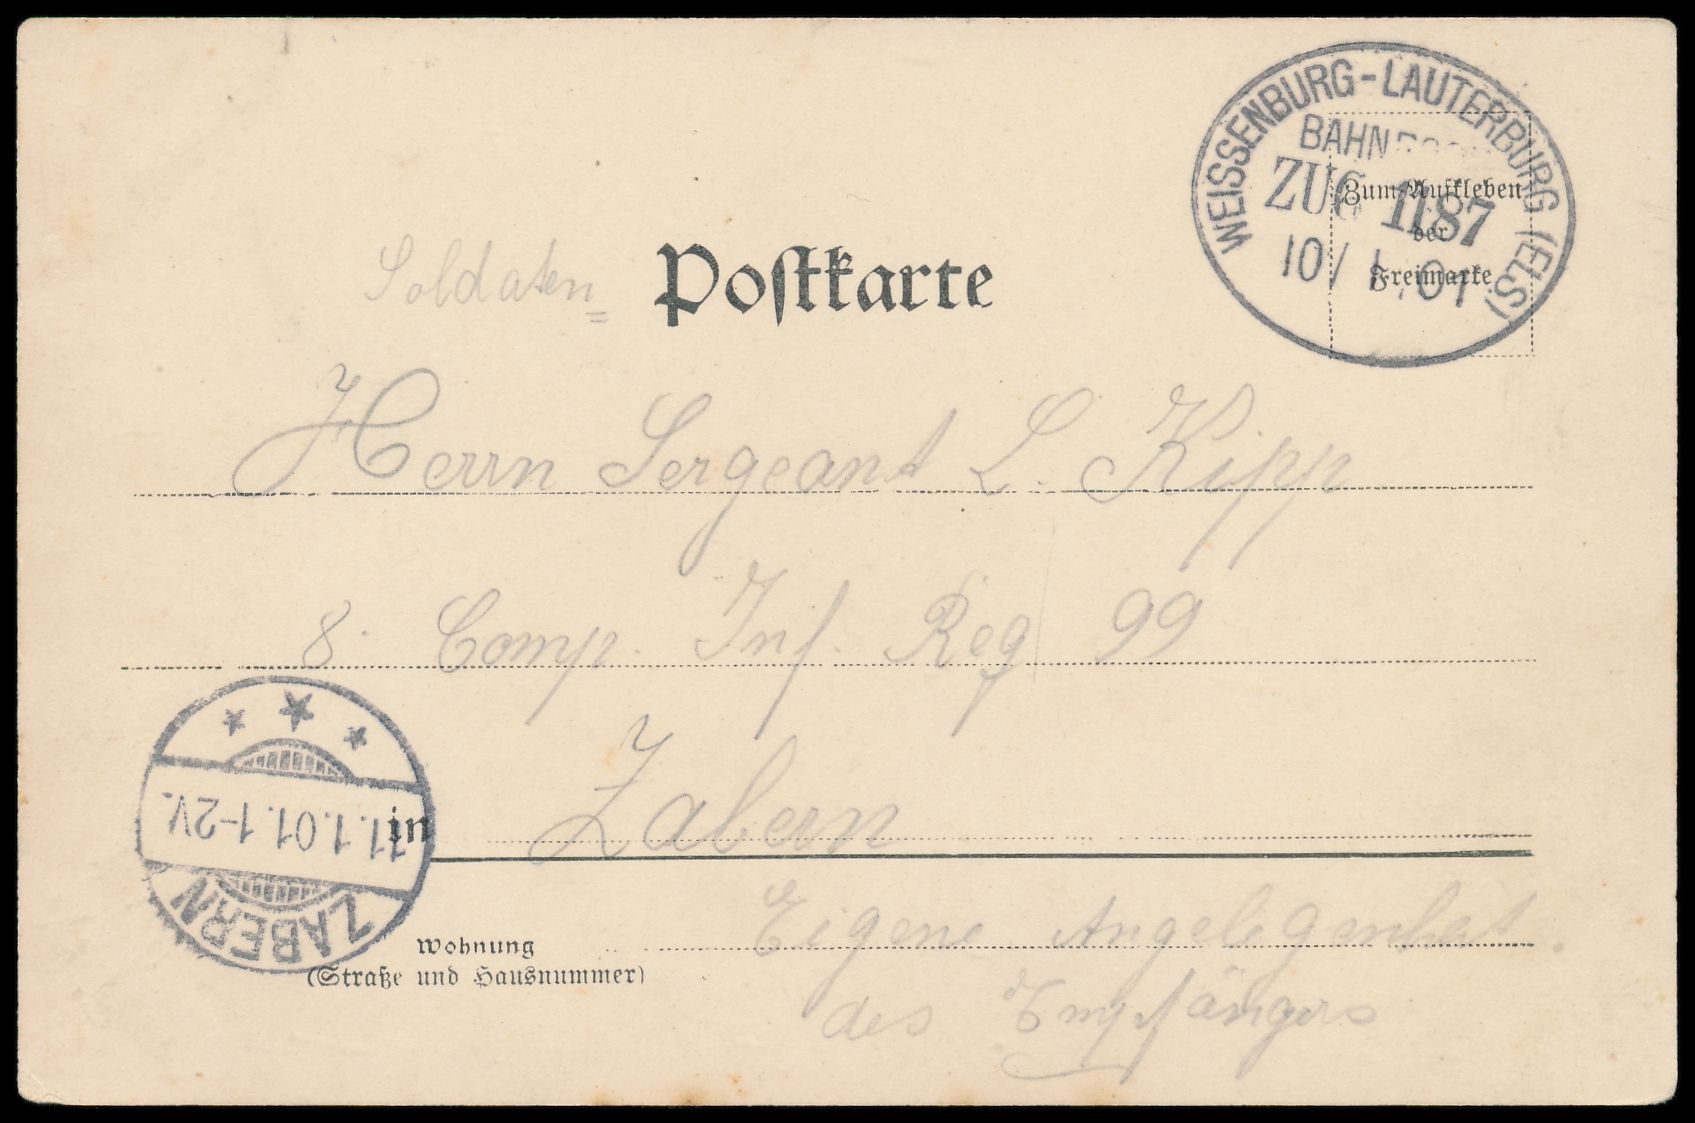 WEISSENBURG-LAUTERBURG (ELS)
ZUG 1187
10/ 1 .01
Zum Aufkleben
der
Freimarke
Soldaten=
Postkarte
Herrn Sergeant L. Kipp
8. Comp. Inf. Reg 99
in Zabern
ZABERN
11.1.01.1-2V.
Eigene Angelegenheit.
des Empfängers
Wohnung
(Straße und Hausnummer)